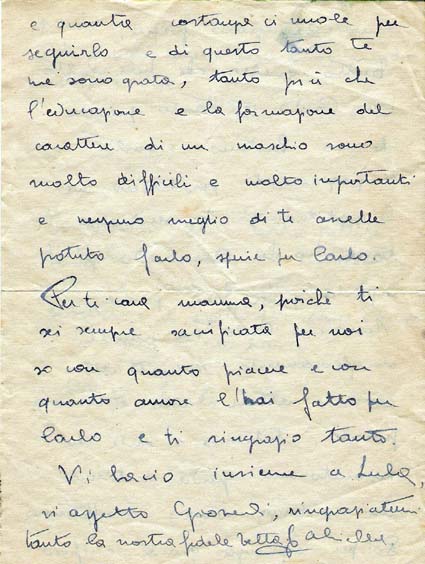 e quanta costanza ci vuole per
seguirlo e di questo tanto te
ne sono grata, tanto più che
l'educazione e la formazione del
carattere di un maschio sono
molto difficili e molto importanti
e nessuno meglio di te avrebbe
potuto farlo, specie per Carlo.
Per te cara mamma, poichè ti
sei sempre sacrificata per noi
so con quanto piacere e con
quanto amore l'hai fatto per
Carlo e ti ringrazio tanto.
Vi bacio insieme a Lula,
vi aspetto Giovedì, ringraziatemi
tanto la nostra fedele